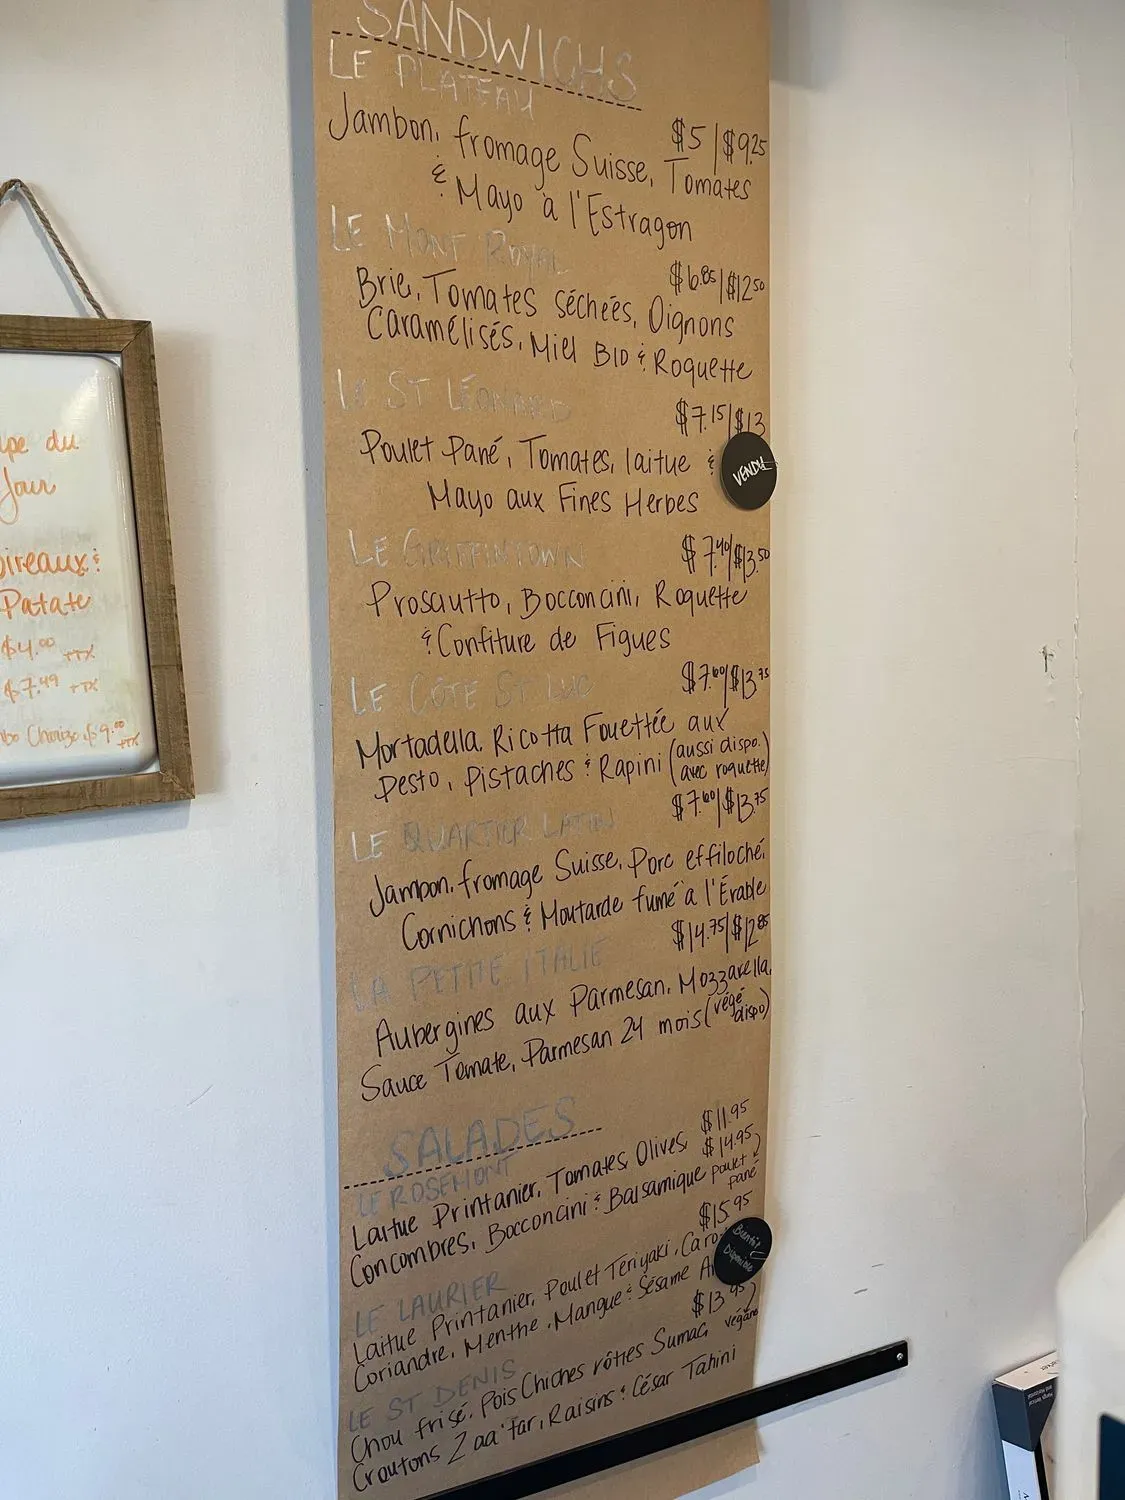 SANDWICHS
LE PLATEAU
$5 | $9.25
Jambon, fromage Suisse, Tomates
& Mayo à l'Estragon
LE MONT ROYAL
$6.85 | $12.50
Brie, Tomates Séchées, Oignons
Caramélisés, Miel BIO & Roquette
LE ST LÉONARD
$7.15 | $13
Poulet Pané, Tomates, laitue &
VENDU
Mayo aux Fines Herbes
LE GRIFFINTOWN
$7.40 | $13.50
Prosciutto, Bocconcini, Roquette
& Confiture de Figues
LE CÔTE ST LUC
$7.60 | $13.75
Mortadella, Ricotta Fouettée aux
Pesto, Pistaches & Rapini (aussi dispo.
avec roquette)
LE QUARTIER LATIN
$7.60 | $13.75
Jambon, fromage Suisse, Porc effiloché,
Cornichons & Moutarde fumé à l'Érable
LA PETITE ITALIE
$14.75 | $12.85
Aubergines aux Parmesan, Mozzarella,
Sauce Tomate, Parmesan 24 mois (végé
dispo)
SALADES
LE ROSEMONT
$11.95
$14.95
Laitue Printanier, Tomates, Olives,
Concombres, Bocconcini & Balsamique
poulet
pané
LE LAURIER
$15.95
Laitue Printanier, Poulet Teriyaki,
Coriandre, Menthe, Mangue & Sésame
Bientôt
Disponible
LE ST DENIS
$13.95
végane
Chou frisé, Pois Chiches rôties Sumac,
Croutons Zaa'tar, Raisins & César Tahini
du
Jour
&
Patate
$4.00 +TX
$7.49 +TX
Chorizo $9.00 +TX